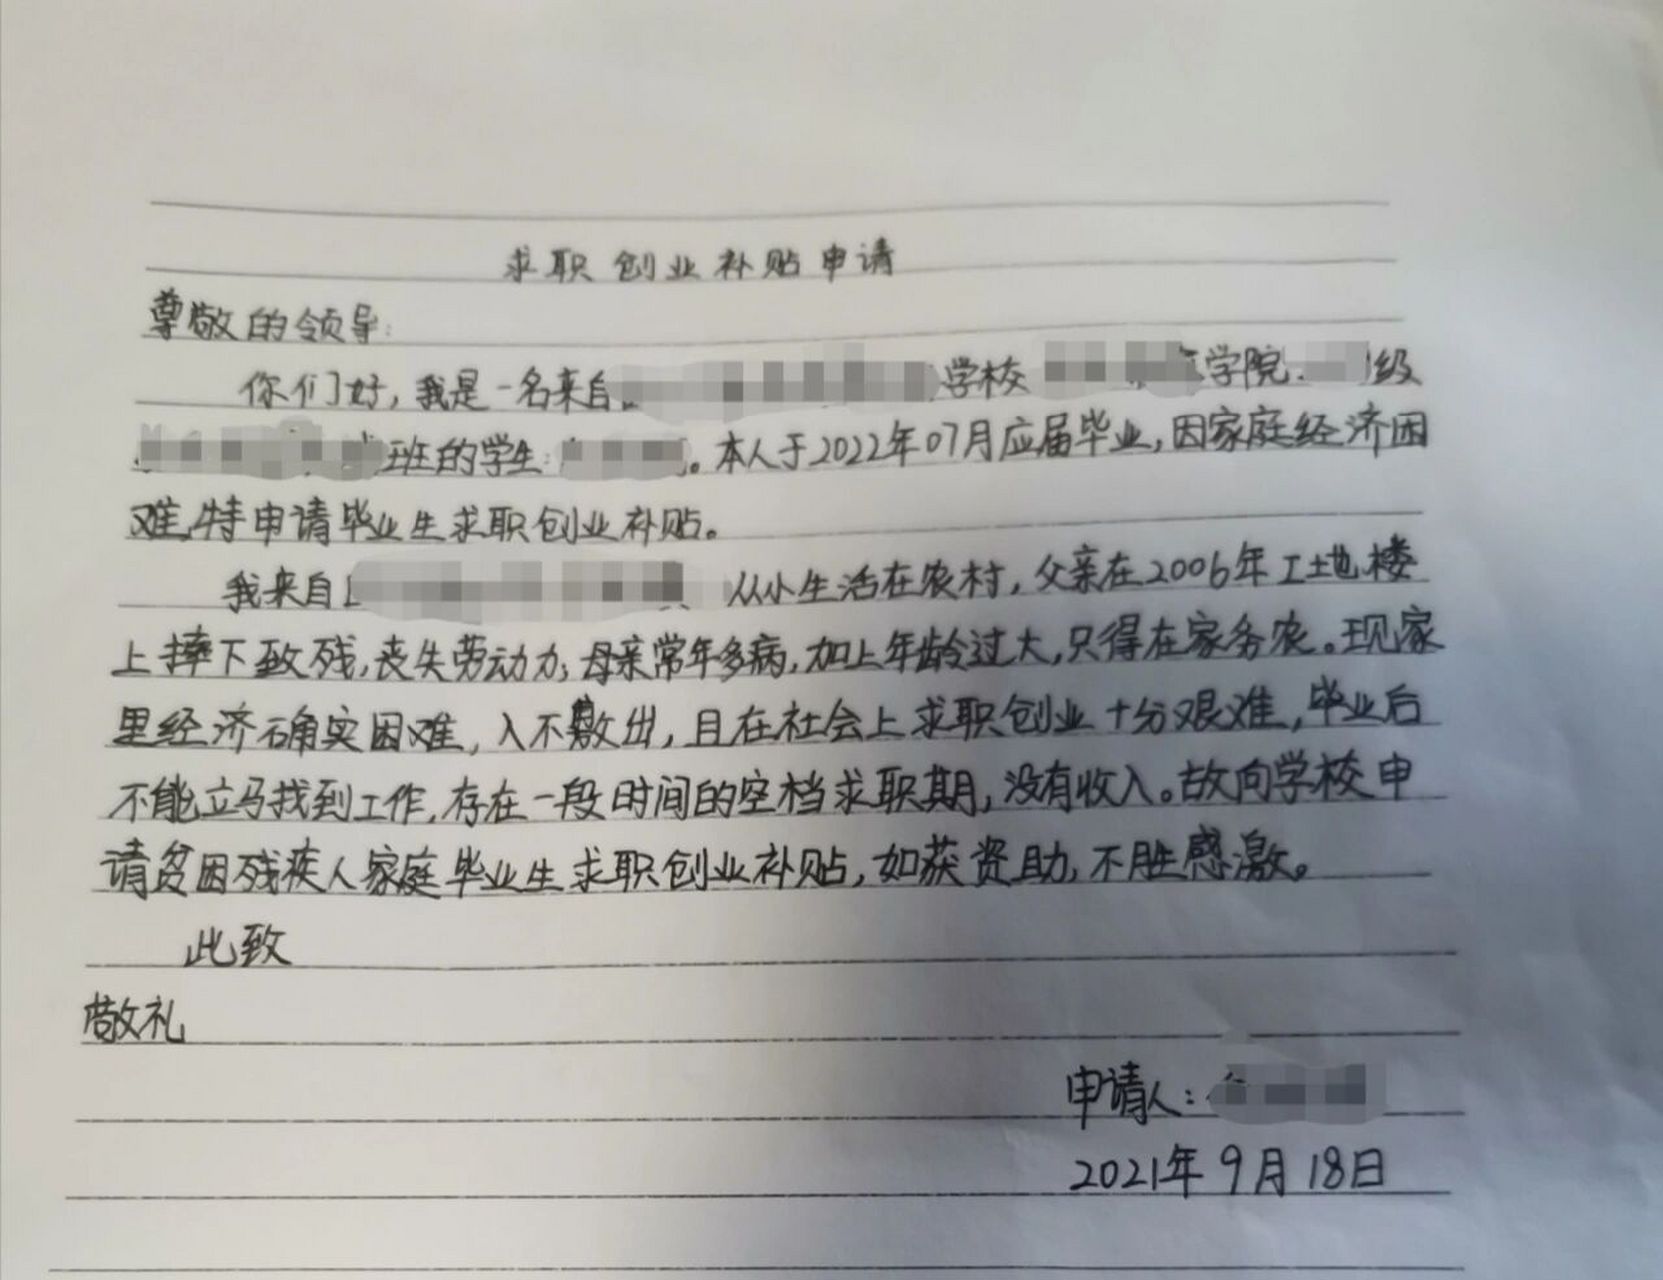 求职创业补贴申请
尊敬的领导:
你们好,我是一名来自学校学院级
班的学生:。本人于2022年07月应届毕业,因家庭经济困
难,特申请毕业生求职创业补贴。
我来自从小生活在农村,父亲在2006年工地楼
上摔下致残,丧失劳动力;母亲常年多病,加上年龄过大,只得在家务农。现家
里经济确实困难,入不敷出,且在社会上求职创业十分艰难,毕业后
不能立马找到工作,存在一段时间的空档求职期,没有收入。故向学校申
请贫困残疾人家庭毕业生求职创业补贴,如获资助,不胜感激。
此致
敬礼
申请人:
2021年9月18日